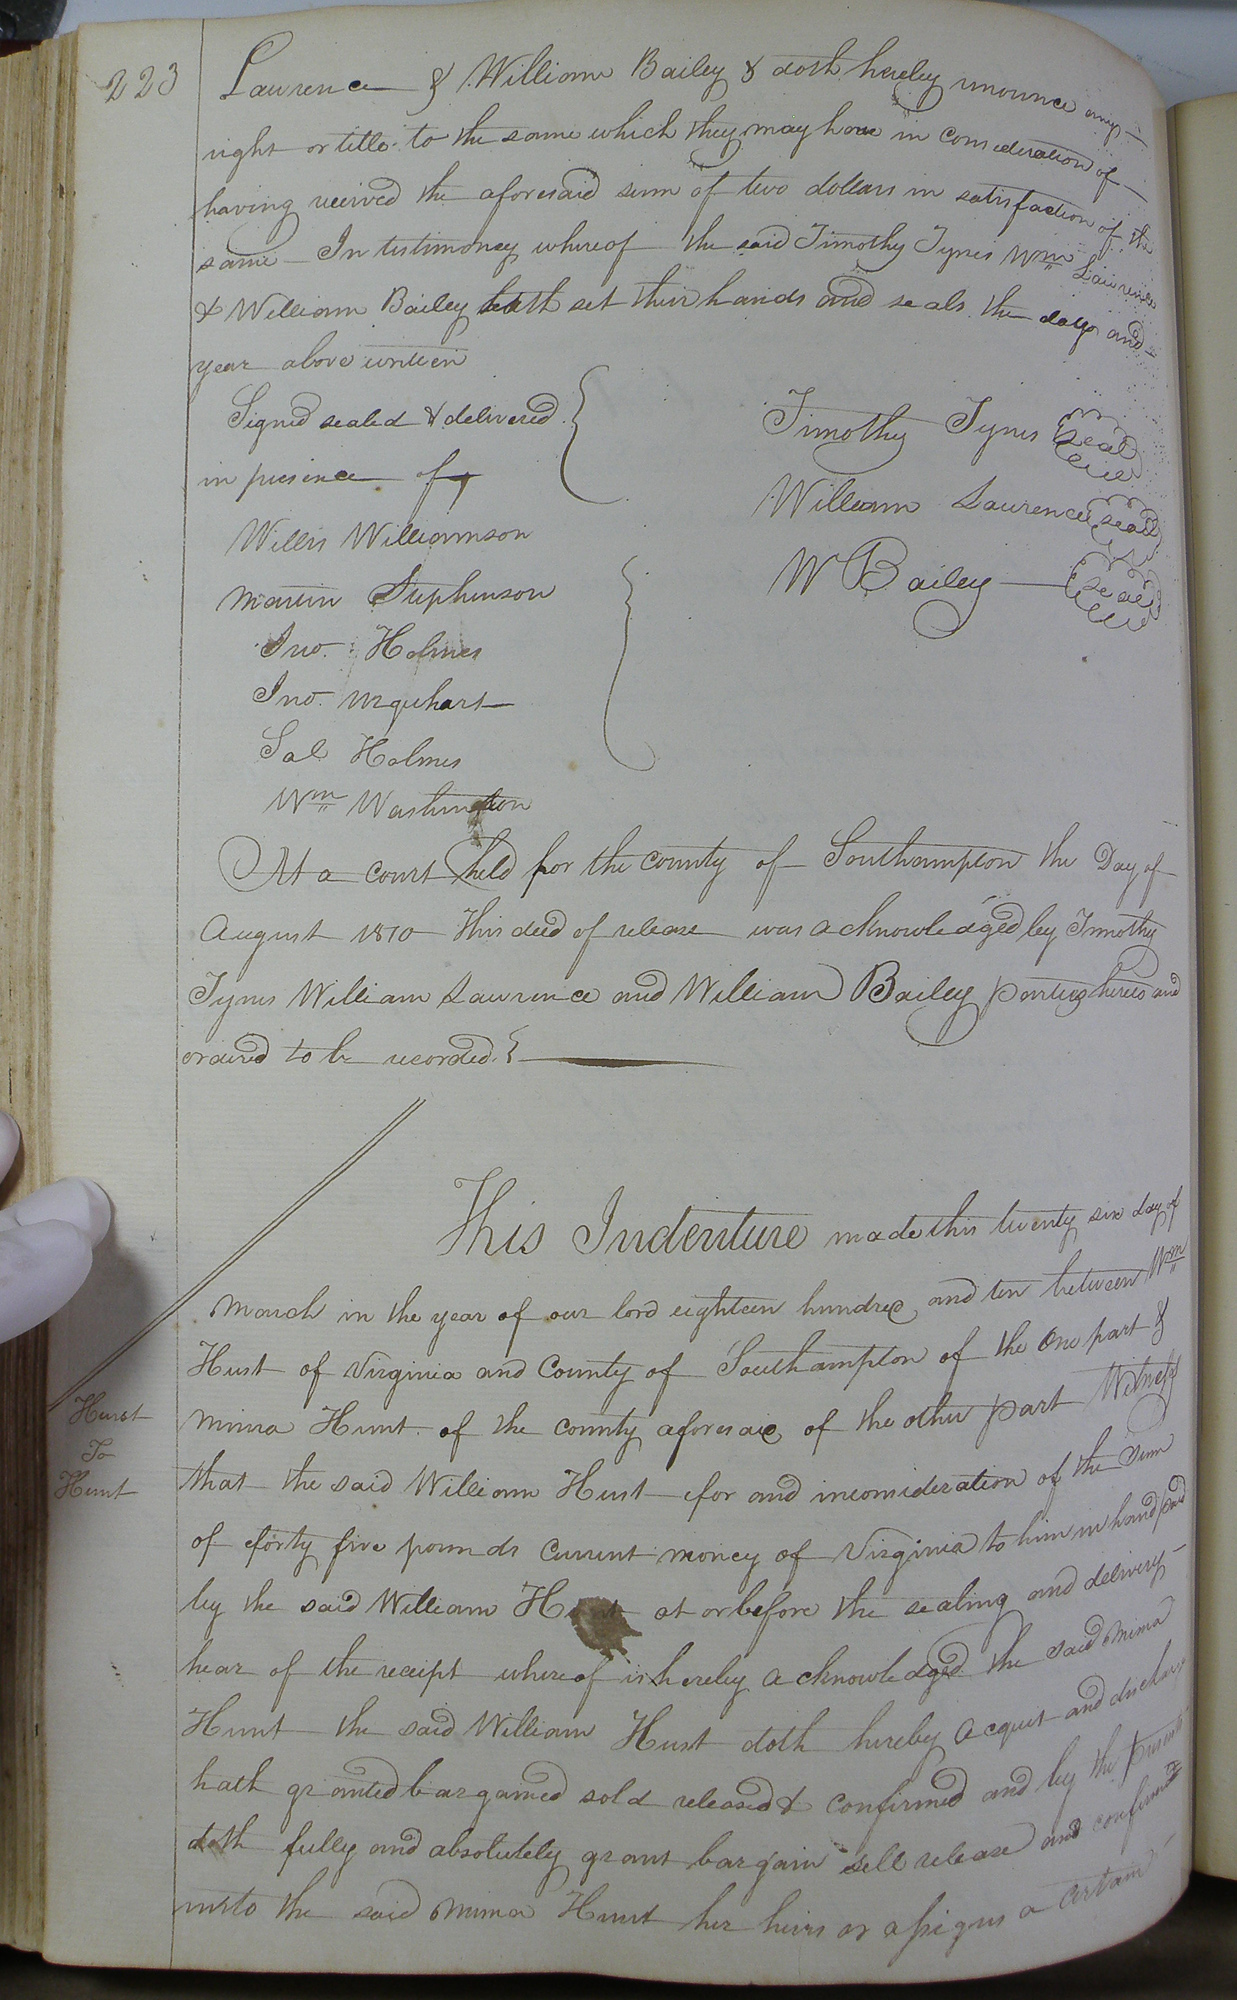 223
Lawrence & William Bailey & doth hereby renounce any
right or title to the same which they may have in consideration of
having received the aforesaid sum of two dollars in satisfaction of the
same - In testimoney whereof the said Timothy Tynes Wm Lawrence
& William Bailey hath set their hands and seals the day and
year above written
Signed sealed & delivered
in presence of
Timothy Tynes seal
William Lawrence seal
W Bailey seal
Willis Williamson
Martin Stephenson
Jno. Holmes
Jno. Urquhart
Sol Holmes
Wm Washington
At a court held for the county of Southampton the Day of
August 1810 This deed of release was acknowledged by Timothy
Tynes William Lawrence and William Bailey parties hereto and
ordered to be recorded.
This Indenture made this twenty six day of
March in the year of our lord eighteen hundred and ten between Wm
Hust of Virginia and County of Southampton of the One part &
Mima Hunt of the county aforesaid of the other part Witness
Hurst
To
Hunt
that the said William Hust for and inconsideration of the sum
of forty five pounds Current money of Virginia to him in hand paid
by the said William Hunt at or before the sealing and delivery
hear of the receipt whereof is hereby acknowledged the said Mima
Hunt the said William Hust doth hereby acquit and discharge
hath granted bargained sold released & confirmed and by the presents
doth fully and absolutely grant bargain sell release and confirmed
unto the said Mima Hunt her heirs or assigns a certain